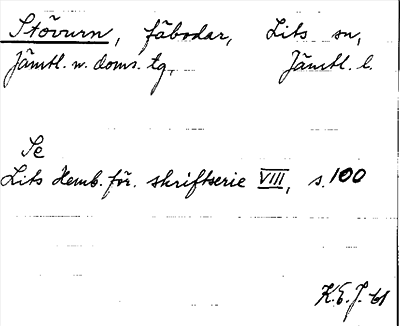 Stövurn, fäbodar, Lits sn,
Jämtl. n. doms. tg, Jämtl. l.
Se
Lits Hemb. för. skriftserie VIII, s. 100
K.E.J. 61